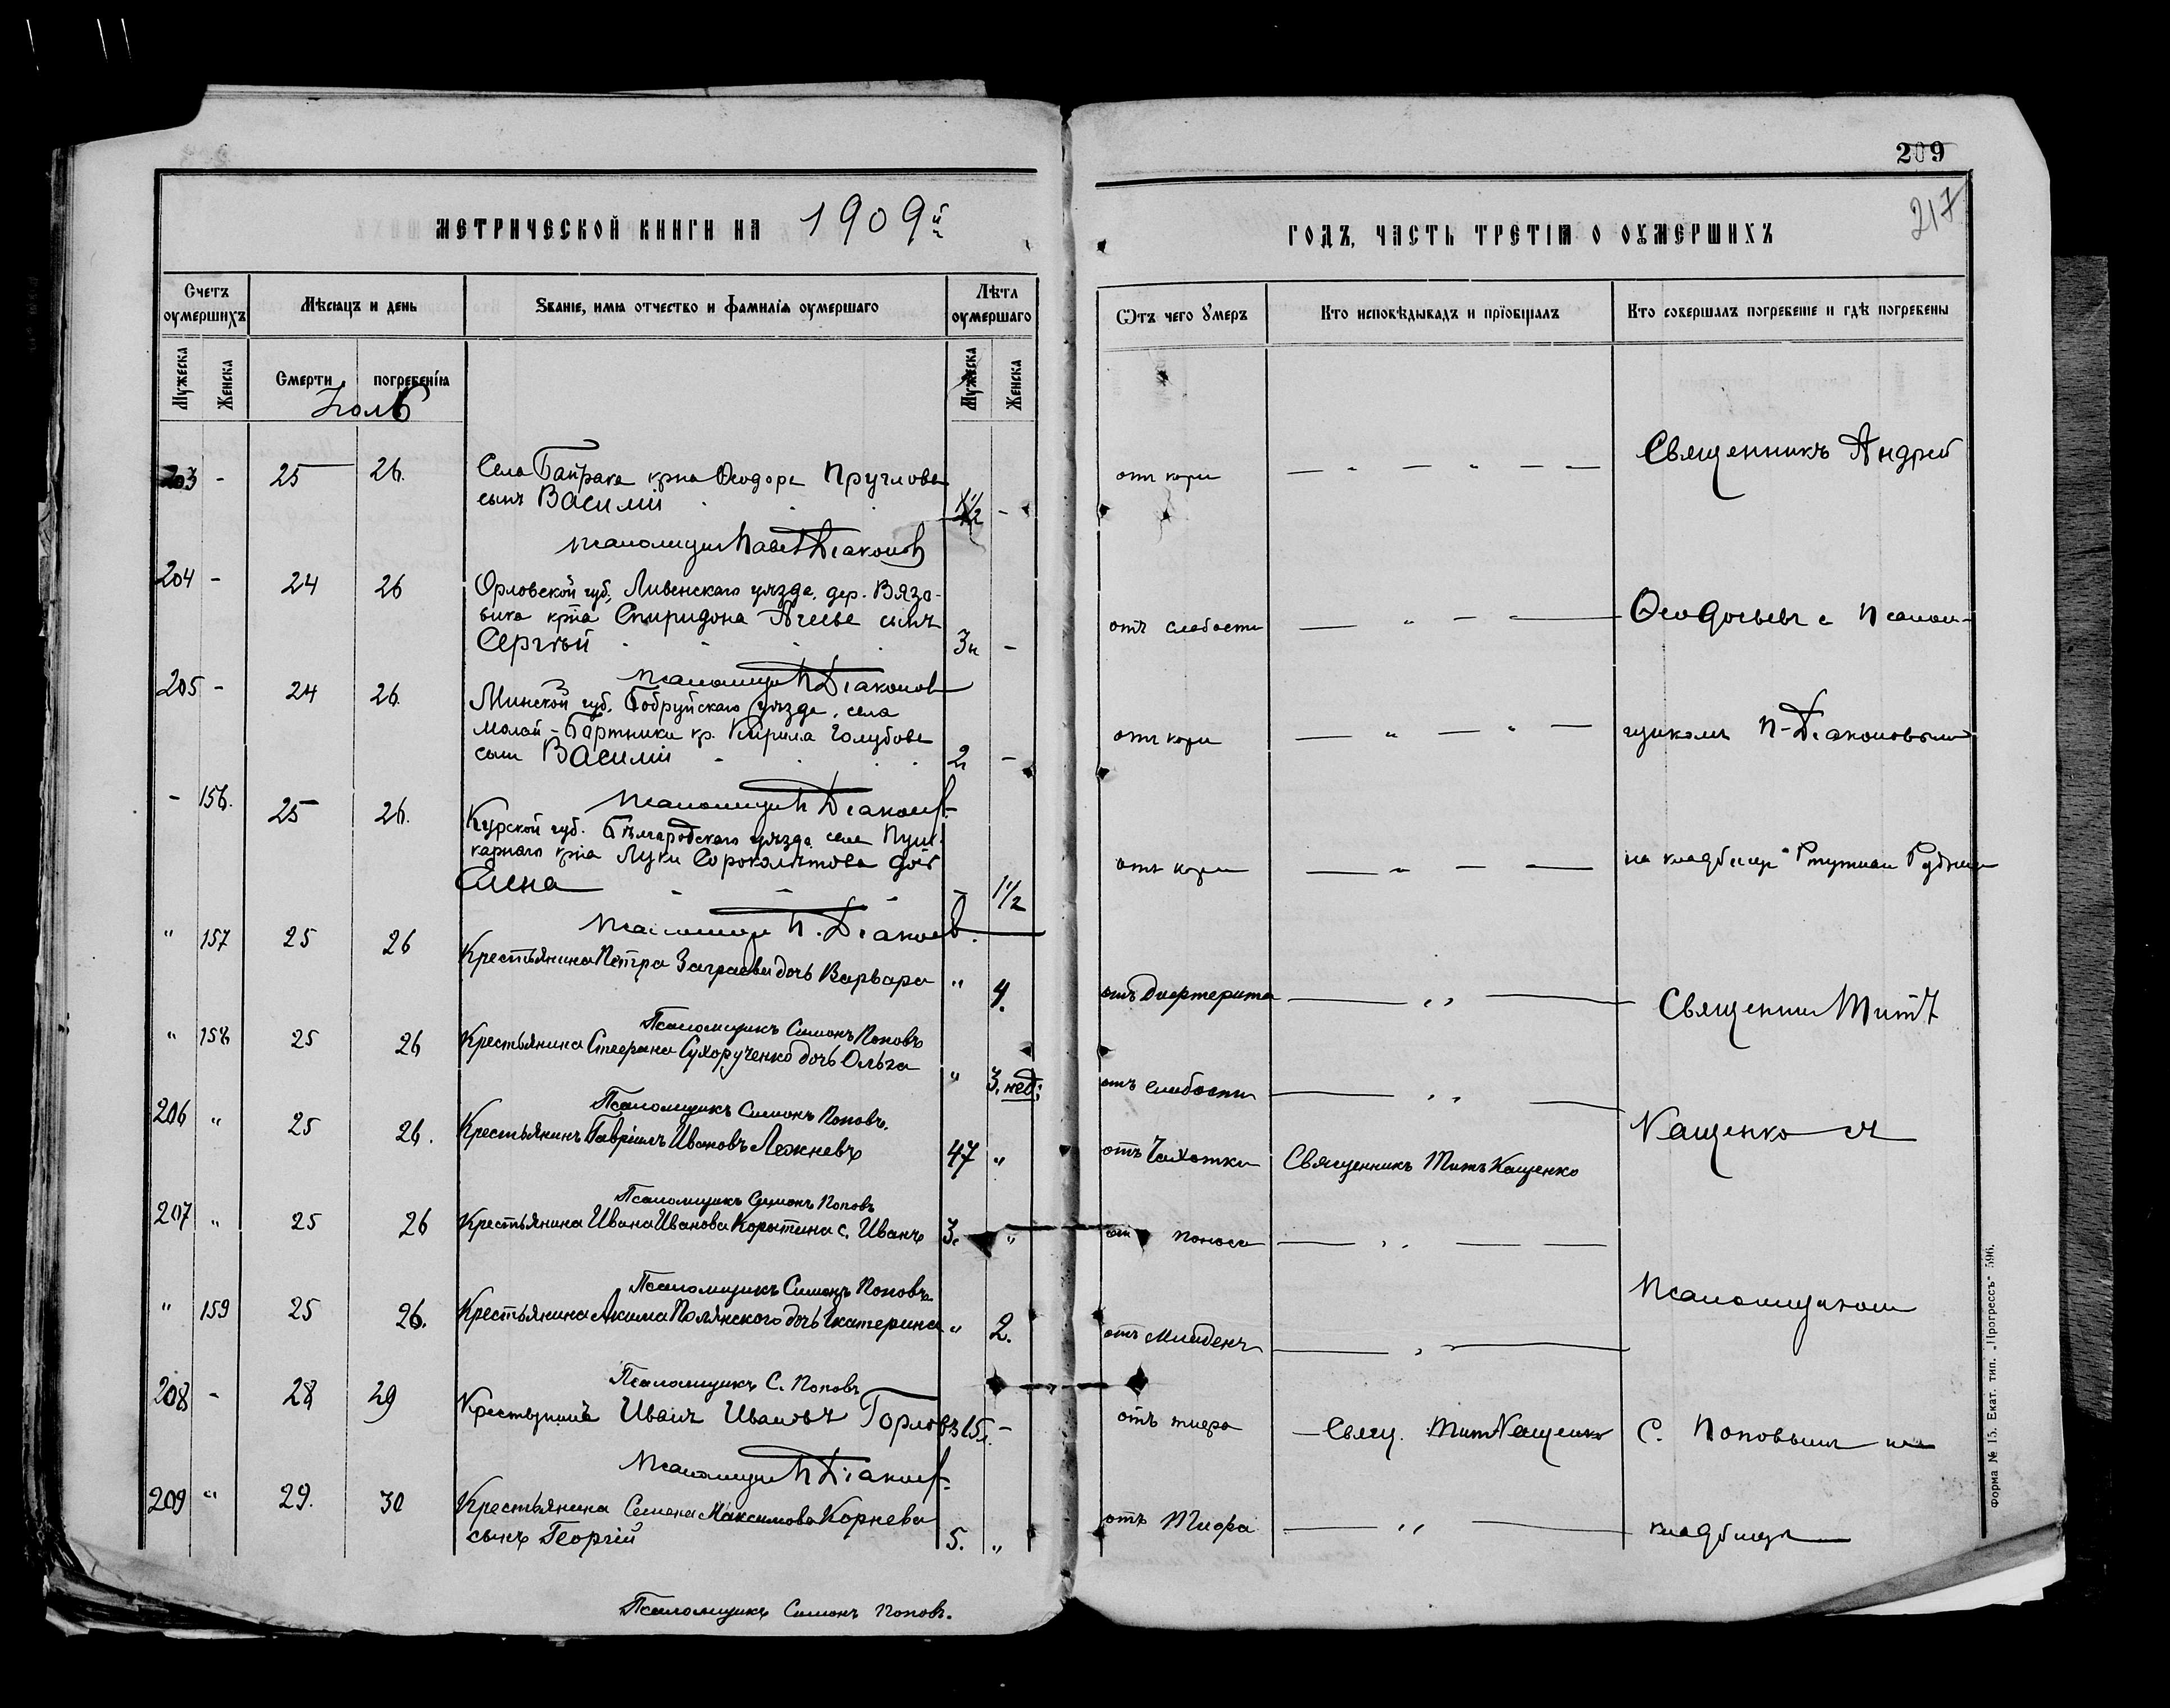 209
217
МЕТРИЧЕСКОЙ КНИГИ НА 1909й
ГОДЪ, ЧАСТЬ ТРЕТІЯ О ОУМЕРШИХЪ
Счетъ оумершихъ
Мѣсяцъ и день
Званіе, имя отчество и фамилія оумершаго
Лѣта оумершаго
Ѿтъ чего умеръ
Кто исповѣдывалъ и пріобщалъ
Кто совершалъ погребеніе и гдѣ погребены
Мужеска
Женска
Смерти
погребенія
Мужеска
Женска
Іюль
203 - 25 26.
Села Байрака крна Ѳеодора Пруглова
сынъ Василій 1½ -
отъ кори
Священникъ Андрей
Псаломщикъ Павел Діаконов
204 - 24 26
Орловской губ., Ливенскаго уѣзда, дер. Вязо-
вика крна Спиридона Агеева сынъ
Сергѣй 3н -
отъ слабости
Ѳеодосьевъ с псалом-
Псаломщик П Діаконов
205 - 24 26.
Минской губ. Бобруйскаго уѣзда, села
Малой-Бартники кр. Кирила Голубова
сынъ Василій 2 -
отъ кори
щикомъ П. Діаконовымъ
Псаломщик П Діаконов
- 156. 25 26.
Курской губ. Бѣлгородскаго уѣзда села Пуш-
карнаго крна Луки Сороколѣтова дочь
Елена - 1½
отъ кори
на кладбище Ртутнаго Рудника
Псаломщик П. Діаконов.
" 157 25 26
Крестьянина Петра Заграева дочь Варвара " 4.
отъ Дифтерита
Священник Митр.
Псаломщикъ Симонъ Поповъ
" 158 25 26
Крестьянина Стефана Сухорученко дочь Ольга " 3. нед:
отъ слабости
Псаломщикъ Симонъ Поповъ.
206 " 25 26.
Крестьянинъ Гавріилъ Ивановъ Лежневъ 47 "
отъ Чахотки
Священникъ Митр. Кащенко
Кащенко съ
Псаломщикъ Симонъ Поповъ
207 " 25 26
Крестьянина Ивана Иванова Корытина с. Иванъ 3. "
отъ поноса
Псаломщикъ Симонъ Поповъ
" 159 25 26.
Крестьянина Акима Полянского дочь Екатерина " 2.
отъ младенч.
Псаломщиком
Псаломщикъ С. Поповъ
208 - 28 29
Крестьянинъ Иванъ Ивановъ Горловъ 15л. -
отъ тифа
Свящ. Митр Кащенко
С. Поповымъ на
Псаломщик П Діаконов
209 " 29. 30
Крестьянина Семена Максимова Корнева
сынъ Георгій 5. "
отъ Тифа
кладбищѣ
Псаломщикъ Симонъ Поповъ.
Форма № 15. Екат. тип. „Прогрессъ" 596.